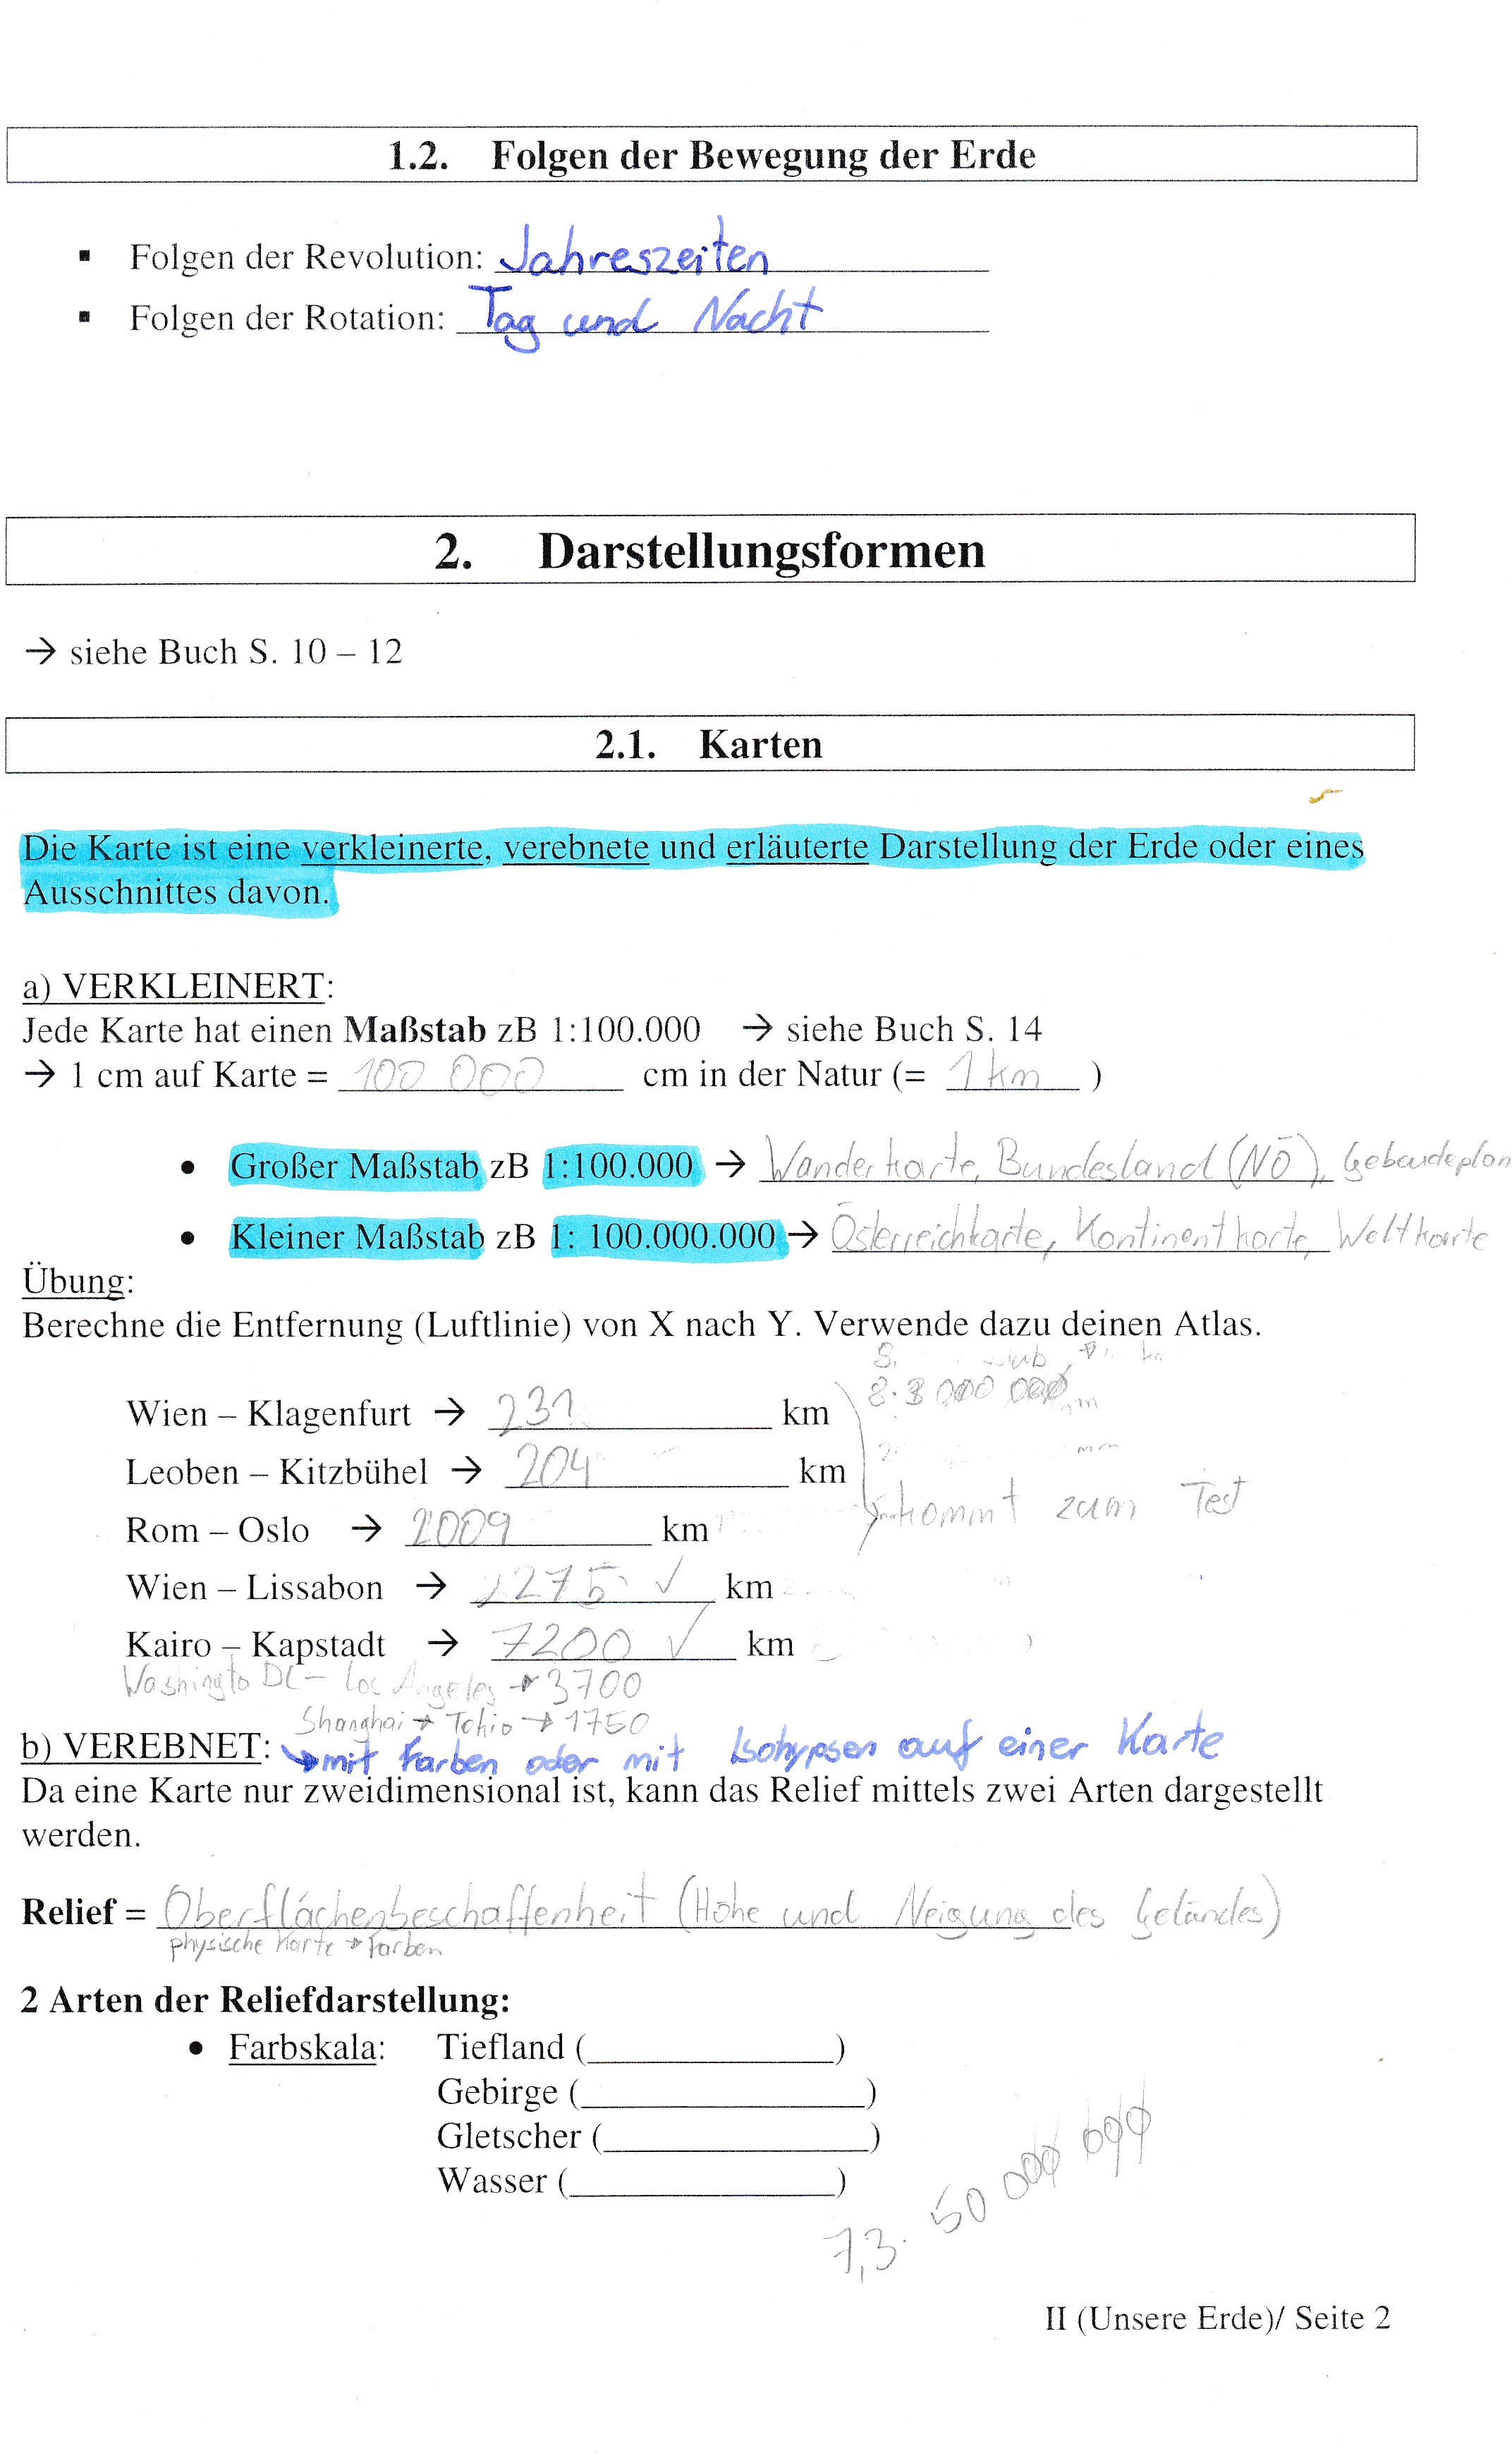 1.2. Folgen der Bewegung der Erde
▪ Folgen der Revolution: Jahreszeiten
▪ Folgen der Rotation: Tag und Nacht
2. Darstellungsformen
→ siehe Buch S. 10 – 12
2.1. Karten
Die Karte ist eine verkleinerte, verebnete und erläuterte Darstellung der Erde oder eines
Ausschnittes davon.
a) VERKLEINERT:
Jede Karte hat einen Maßstab zB 1:100.000 → siehe Buch S. 14
→ 1 cm auf Karte = 100 000 cm in der Natur (= 1 km )
• Großer Maßstab zB 1:100.000 → Wanderkarte, Bundesland (NÖ), Gebeudeplan
• Kleiner Maßstab zB 1: 100.000.000 → Österreichkarte, Kontinentkarte, Weltkarte
Übung:
Berechne die Entfernung (Luftlinie) von X nach Y. Verwende dazu deinen Atlas.
8·3 000 000
Wien – Klagenfurt → 231 km
Leoben – Kitzbühel → 204 km
kommt zum Test
Rom – Oslo → 2009 km
Wien – Lissabon → 2275 ✓ km
Kairo – Kapstadt → 7200 ✓ km
Washingto DC – Los Angeles → 3700
Shanghai → Tokio → 1750
b) VEREBNET: → mit Farben oder mit Isohypsen auf einer Karte
Da eine Karte nur zweidimensional ist, kann das Relief mittels zwei Arten dargestellt
werden.
Relief = Oberflächenbeschaffenheit (Höhe und Neigung des Geländes)
physische Karte → Farben
2 Arten der Reliefdarstellung:
• Farbskala: Tiefland (____________)
Gebirge (____________)
Gletscher (____________)
Wasser (____________)
7,3· 50 000 000
II (Unsere Erde)/ Seite 2